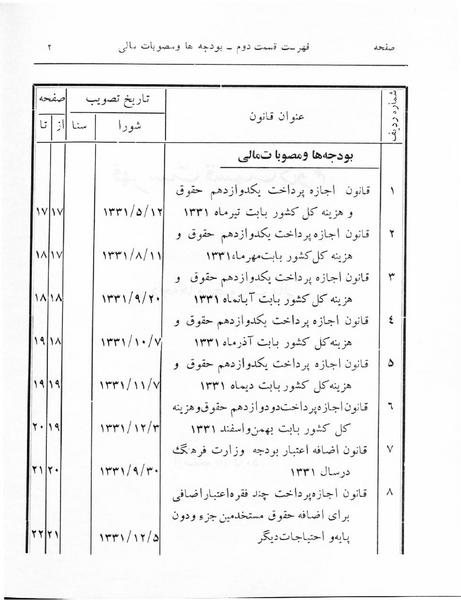 صفحه فهرست قسمت دوم ــ بودجه ها ومصوبات مالی ۲
شماره ردیف عنوان قانون تاریخ تصویب صفحه
شورا سنا از تا
بودجه‌ها ومصوبات مالی
۱ قانون اجازه پرداخت یکدوازدهم حقوق
و هزینه کل کشور بابت تیرماه ۱۳۳۱ ۱۳۳۱/۵/۱۲ ۱۷ ۱۷
۲ قانون اجازه پرداخت یکدوازدهم حقوق و
هزینه کل کشور بابت مهرماه ۱۳۳۱ ۱۳۳۱/۸/۱۱ ۱۷ ۱۸
۳ قانون اجازه پرداخت یکدوازدهم حقوق و
هزینه کل کشور بابت آبانماه ۱۳۳۱ ۱۳۳۱/۹/۲۰ ۱۸ ۱۸
۴ قانون اجازه پرداخت یکدوازدهم حقوق و
هزینه کل کشور بابت آذرماه ۱۳۳۱ ۱۳۳۱/۱۰/۷ ۱۸ ۱۹
۵ قانون اجازه پرداخت یکدوازدهم حقوق و
هزینه کل کشور بابت دیماه ۱۳۳۱ ۱۳۳۱/۱۱/۷ ۱۹ ۱۹
۶ قانون اجازه پرداخت دودوازدهم حقوق وهزینه
کل کشور بابت بهمن واسفند ۱۳۳۱ ۱۳۳۱/۱۲/۳ ۱۹ ۲۰
۷ قانون اضافه اعتبار بودجه وزارت فرهنگ
درسال ۱۳۳۱ ۱۳۳۱/۹/۳۰ ۲۰ ۲۱
۸ قانون اجازه پرداخت چند فقره اعتبار اضافی
برای اضافه حقوق مستخدمین جزء ودون
پایه و احتیاجات دیگر ۱۳۳۱/۱۲/۵ ۲۱ ۲۲